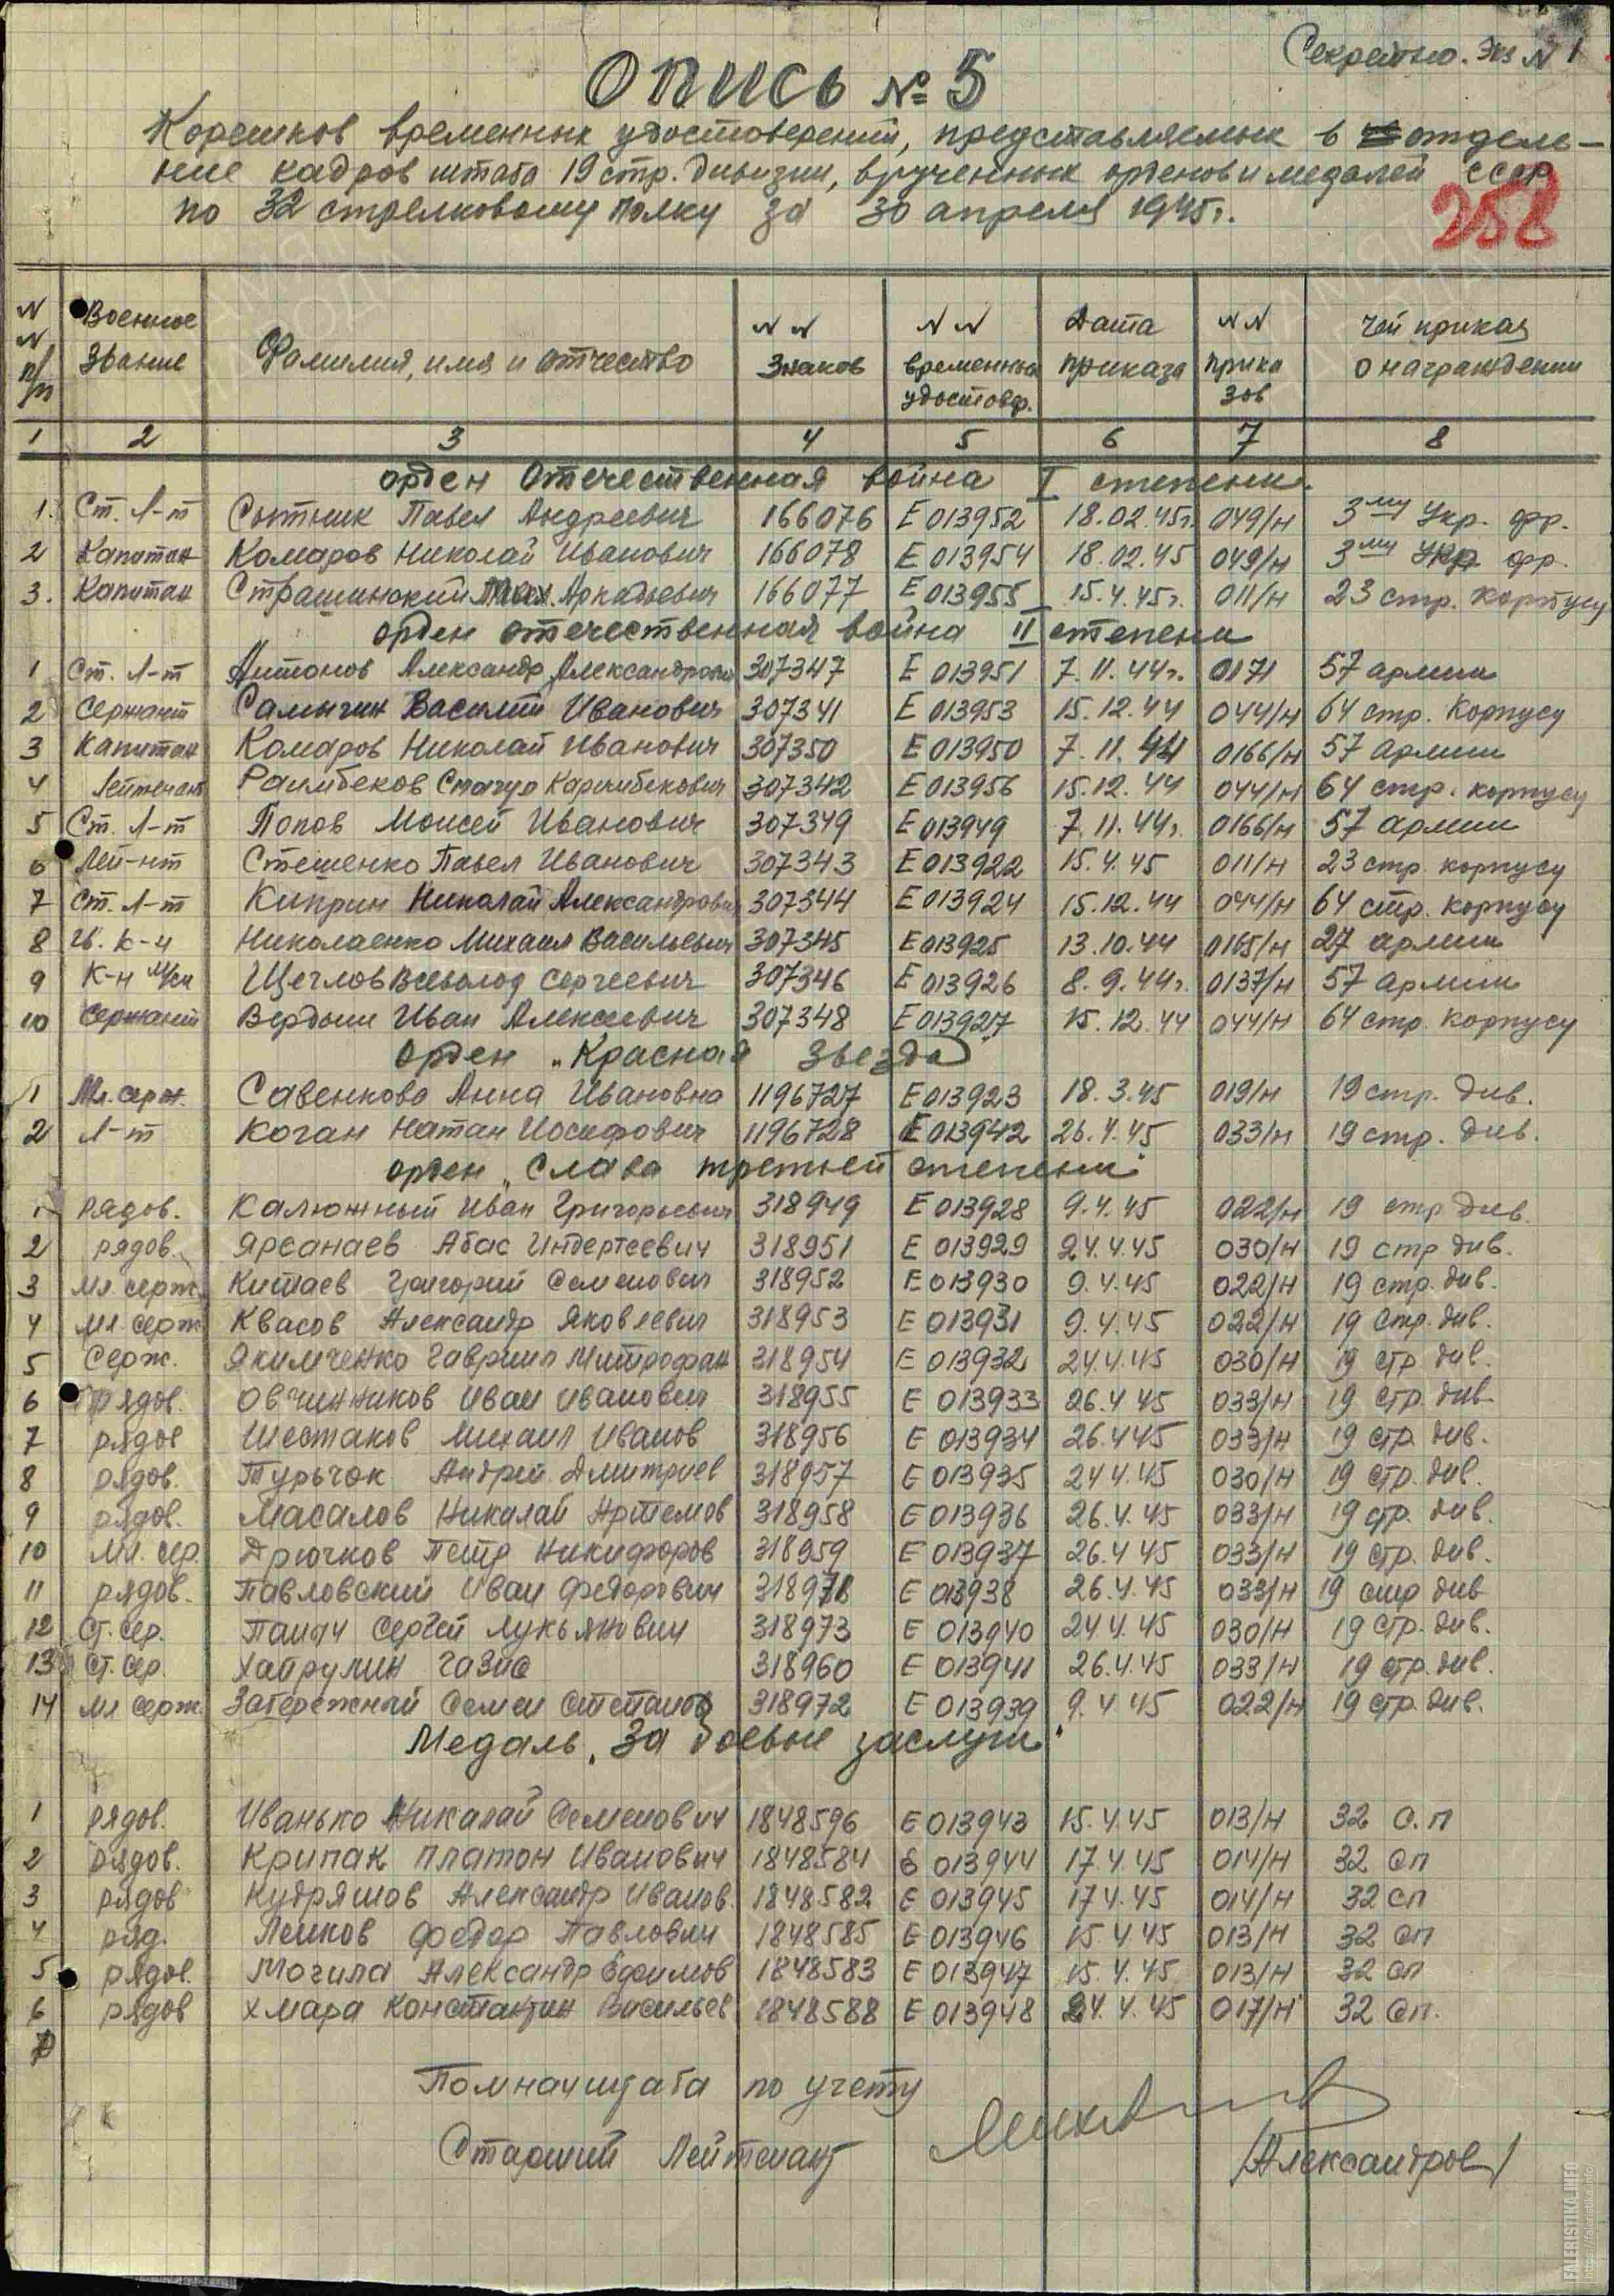 Секретно. Экз N 1
Опись № 5
Корешков временных удостоверений, представляемых в отделе-
ние кадров штаба 19 стр. дивизии, врученных орденов и медалей СССР
по 32 стрелковому полку за 30 апреля 1945г.
258
N N п/п Военное звание Фамилия, имя и отчество N N знаков N N временных удостовер. Дата приказа N N приказов Чей приказ о награждении
1 2 3 4 5 6 7 8
орден Отечественная война I степени.
1. Ст. Л-т Сытник Павел Андреевич 166076 Е 013952 18.02.45г. 049/н 3му Укр. фр.
2 Капитан Комаров Николай Иванович 166078 Е 013954 18.02.45 049/н 3му Укр фр.
3. Капитан Страшинский Аркадьевич 166077 Е 013955 15.4.45г. 011/н 23 стр. корпусу
орден отечественная война II степени
1 Ст. Л-т Антонов Александр Александрович 307347 Е 013951 7.11.44г. 0171 57 армии
2 Сержант Салычин Василий Иванович 307341 Е 013953 15.12.44 044/н 64 стр. Корпусу
3 Капитан Комаров Николай Иванович 307350 Е 013950 7.11.44 0166/н 57 армии
4 Лейтенант Раимбеков Каримбекович 307342 Е 013956 15.12.44 044/н 64 стр. корпусу
5 Ст. Л-т Попов Моисей Иванович 307349 Е 013949 7.11.44г. 0166/н 57 армии
6 Лей-нт Стешенко Павел Иванович 307343 Е 013922 15.4.45 011/н 23 стр. корпусу
7 Ст. Л-т Киприн Николай Александрович 307344 Е 013924 15.12.44 044/н 64 стр. корпусу
8 Гв. к-н Николаенко Михаил Васильевич 307345 Е 013925 13.10.44 0165/н 27 армии
9 К-н М/сл Щеглов Всеволод Сергеевич 307346 Е 013926 8.9.44г. 0137/н 57 армии
10 Сержант Вердыш Иван Алексеевич 307348 Е 013927 15.12.44 044/н 64 стр. корпусу
орден „Красная Звезда"
1 Мл. серж. Савенкова Анна Ивановна 1196727 Е 013923 18.3.45 019/н 19 стр. див.
2 Л-т Коган Натан Иосифович 1196728 Е 013942 26.4.45 033/н 19 стр. див.
орден „Слава третьей степени"
1 рядов. Калюжный Иван Григорьевич 318949 Е 013928 9.4.45 022/н 19 стр див.
2 рядов. Ярсанаев Абас Индертеевич 318951 Е 013929 24.4.45 030/н 19 стр див.
3 мл. серж. Китаев Григорий Семенович 318952 Е 013930 9.4.45 022/н 19 стр. див.
4 мл. серж Квасов Александр Яковлевич 318953 Е 013931 9.4.45 022/н 19 стр. див.
5 Серж. Якимченко Гавриил Митрофан 318954 Е 013932 24.4.45 030/н 19 стр див.
6 рядов. Овчинников Иван Иванович 318955 Е 013933 26.4 45 033/н 19 стр. див
7 рядов Шестаков Михаил Иванов 318956 Е 013934 26.4 45 033/н 19 стр. див.
8 рядов. Турьчок Андрей Дмитриев 318957 Е 013935 24 4.45 030/н 19 стр. див.
9 рядов. Масалов Николай Артемов 318958 Е 013936 26.4.45 033/н 19 стр. див.
10 мл. сер. Дрючков Петр Никифоров 318959 Е 013937 26.4 45 033/н 19 стр. див.
11 рядов. Павловский Иван Федорович Е 013938 26.4.45 033/н 19 стр див
12 Ст. сер. Панич Сергей Лукьянович 318973 Е 013940 24.4.45 030/н 19 стр. див.
13 Ст. сер. Хайрулин Газис 318960 Е 013941 26.4.45 033/н 19 стр. див.
14 мл серж. Забережный Семен Степанов 318972 Е 013939 9.4 45 022/н 19 стр. див.
Медаль „За боевые заслуги"
1 рядов. Иванько Николай Семенович 1848596 Е 013943 15.4.45 013/н 32 С.П
2 рядов. Крипак Платон Иванович 1848584 Е 013944 17.4.45 014/н 32 сп
3 рядов Кудряшов Александр Иванов. 1848582 Е 013945 17 4.45 014/н 32 сп
4 ряд. Пенков Федор Павлович 1848585 Е 013946 15 4 45 013/н 32 сп
5 рядов. Могила Александр Ефимов 1848583 Е 013947 15.4.45 013/н 32 сп
6 рядов Хмара Константин Васильев 1848588 Е 013948 24.4.45 017/н 32 сп.
7
Помначштаба по учету
Старший Лейтенант /Александров/
FALERISTIKA.INFO
https://faleristika.info/